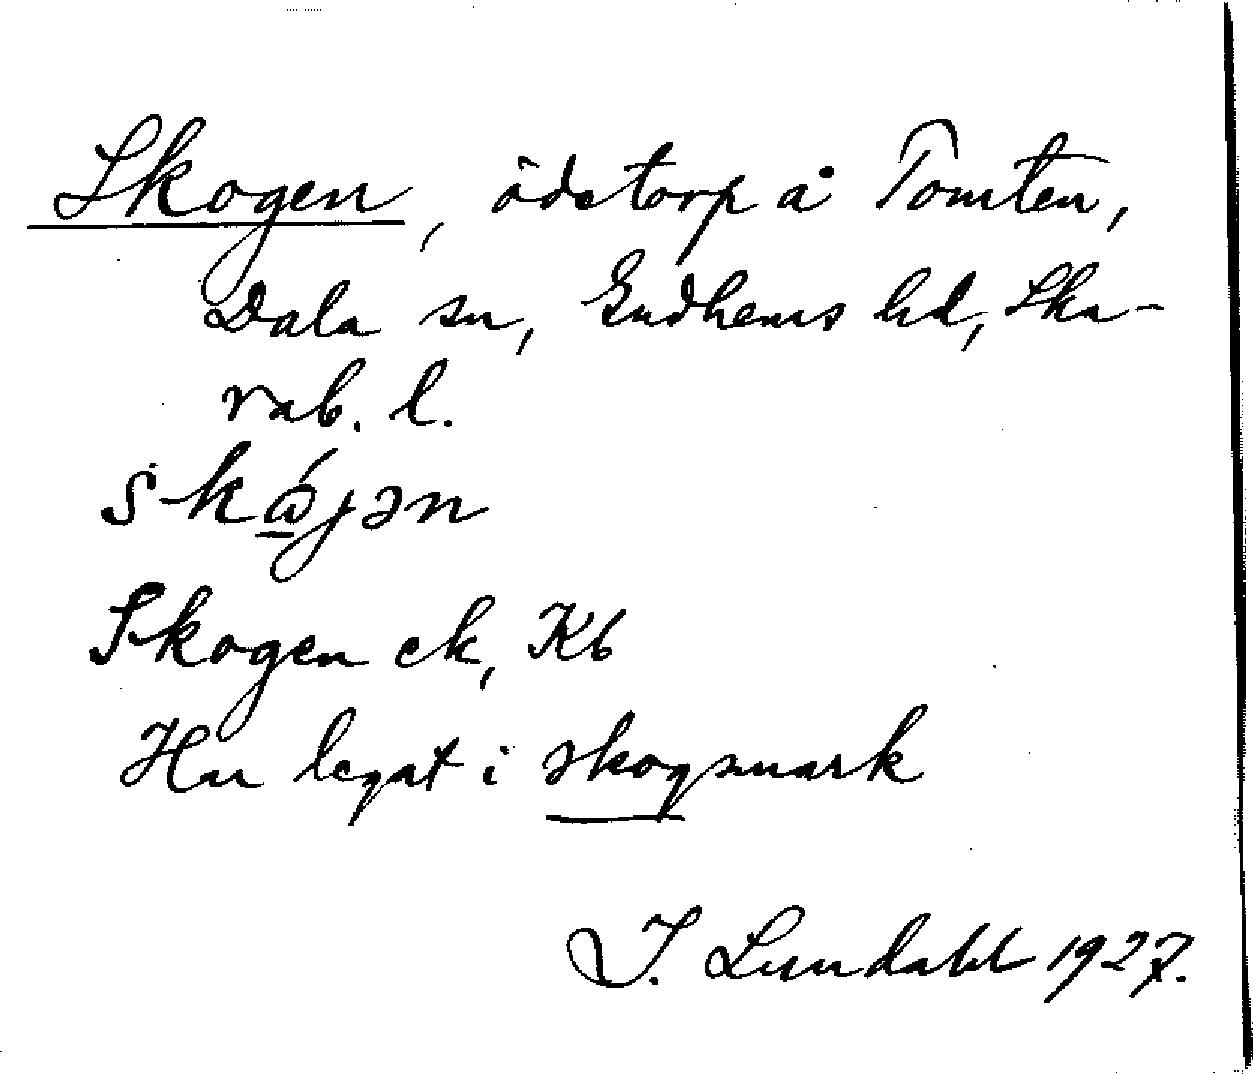 Skogen, ödetorp å Tomten,
Dala sn, Gudhems hd, Ska-
rab. l.
skώ̲jən
Skogen ek, Kb
Har legat i skogsmark
I. Lundahl 1927.